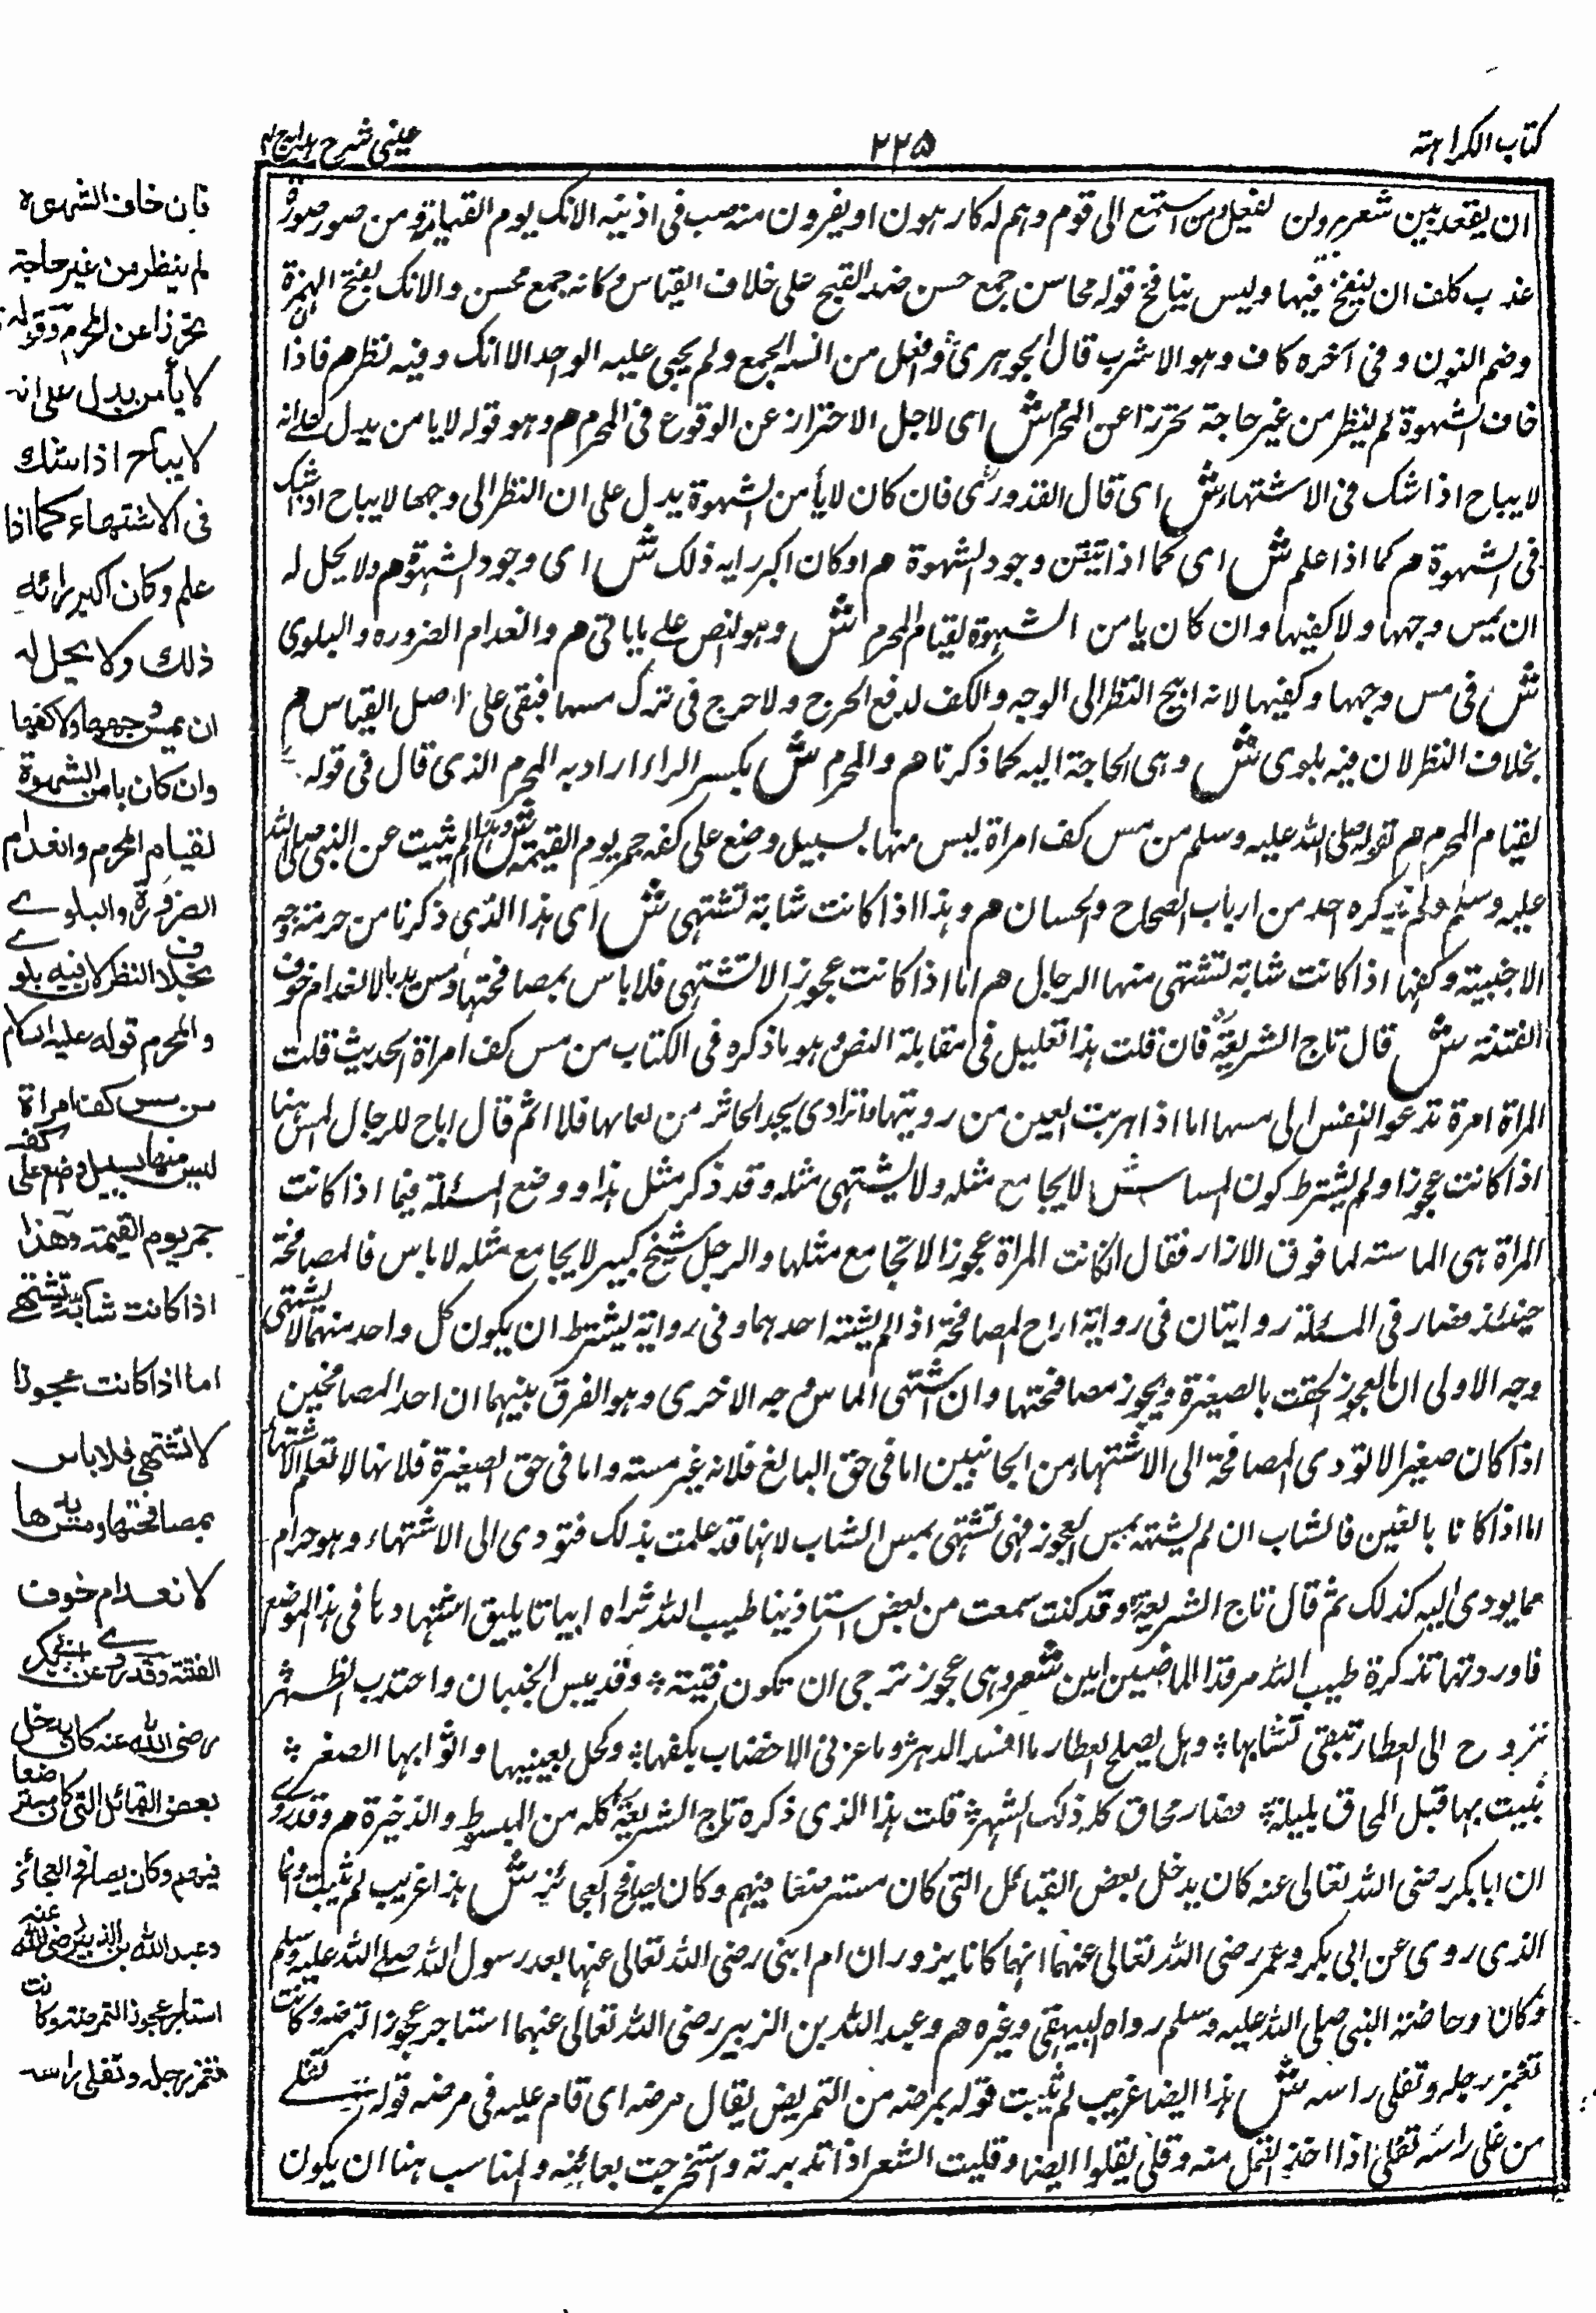 كتاب الكراهته
٢٢٥
عينى شرح هدايه ج ٤
ان يقعد بين شعيرين ولن يفعل ومن استمع الى قوم وهم له كارهون او يفرون منه صب فى اذنيه الانك يوم القيامة ومن صور صورة
عذب كلف ان ينفخ فيها وليس بنافخ قوله محاسن جمع حسن ضد القبح على خلاف القياس وكانه جمع محسن والانك بفتح الهمزة
وضم النون وفى آخره كاف وهو الاسرب قال الجوهرى وافعل من ابنية الجمع ولم يجئ عليه الواحد الا انك وفيه نظر هم فاذا
خاف الشهوة لم ينظر من غير حاجة تحرزا عن المحرم ش اى لاجل الاحتراز عن الوقوع فى المحرم هم وهو قوله لا يامن يدل على انه
لا يباح اذا شك فى الاشتهاء ش اى قال القدورى فان كان لا يأمن الشهوة يدل على ان النظر الى وجهها لا يباح اذا شك
فى الشهوة هم كما اذا علم ش اى كما اذا تيقن وجود الشهوة هم او كان اكبر رايه ذلك ش اى وجود الشهوة هم ولا يحل له
ان يمس وجهها ولا كفيها وان كان يامن الشهوة لقيام المحرم ش وهو النص على ما ياتى هم وانعدام الضروره والبلوى
ش فى مس وجهها وكفيها لانه ابيح النظر الى الوجه والكف لدفع الحرج ولا حرج فى ترك مسها فبقى على اصل القياس هم
بخلاف النظر لان فيه بلوى ش وهى الحاجة اليه كما ذكرنا هم والمحرم ش بكسر الراء اراد به المحرم الذى قال فى قوله
لقيام المحرم هم قوله صلى الله عليه وسلم من مس كف امراة ليس منها بسبيل وضع على كفه جمر يوم القيمة ش هذا لم يثبت عن النبى صلى الله
عليه وسلم ولم يذكره احد من ارباب الصحاح والحسان هم وهذا اذا كانت شابة تشتهى ش اى هذا الذى ذكرنا من حرمة وجه
الاجنبية وكفها اذا كانت شابة تشتهى منها الرجال هم اما اذا كانت عجوزا لا تشتهى فلا باس بمصافحتها ومس يدها لانعدام خوف
الفتنة ش قال تاج الشريعة فان قلت هذا تعليل فى مقابلة النص وهو ما ذكره فى الكتاب من مس كف امراة الحديث قلت
المراة امرة تدعو النفس الى مسها اما اذا هربت العين من رويتها وانزادى يجد الحاثر من لعابها فلا اثم قال اباح للرجال المس هنا
اذا كانت عجوزا ولم يشترط كون الماس لا يجامع مثله ولا يشتهى مثله وقد ذكر مثل هذا ووضع المسئلة فيما اذا كانت
المراة هى الماسته لما فوق الازار فقال ان كانت المراة عجوزا لا تجامع مثلها والرجل شيخ كبير لا يجامع مثله لا باس فالمصافحة
حينئذ فصار فى المسئلة روايتان فى رواية اباح المصافحة اذا لم يشته احدهما وفى رواية يشترط ان يكون كل واحد منهما لا يشتهى
وجه الاولى ان العجوز لحقت بالصغيرة ويجوز مصافحتها وان اشتهى الماس وجه الاخرى وهو الفرق بينهما ان احد المصافحين
اذا كان صغيرا لا تودى المصافحة الى الاشتهاء من الجانبين اما فى حق البالغ فلانه غير مسته واما فى حق الصغيرة فلانها لا تعلم الاشتهاء
اما اذا كانا بالغين فالشاب ان لم يشته بمس العجوز فهى تشتهى بمس الشاب لانها قد علمت بذلك فتودى الى الاشتهاء وهو حرام
مما يودى اليه كذلك ثم قال تاج الشريعة وقد كنت سمعت من بعض استاذينا طيب الله ثراه ابياتا يليق استشهادنا فى هذا الموضع
فاوردتها تذكرة طيب الله مرقد الماضيين ابين شعر وهى عجوز ترجى ان تكون فتية ؞ وقد يبس الجنبان واحدب الظهر
تروح الى العطار تبتغى شبابها ؞ وهل يصلح العطار ما افسد الدهر وما عزنى الا خضاب بكفها ؞ وكحل بعينيها واثوابها الصفر ؞
بنيت بها قبل المحاق بليلة ؞ فصار محاق كله ذلك الشهر ؞ قلت هذا الذى ذكره تاج الشريعة كله من المبسوط والذخيرة هم وقد روى
ان ابا بكر رضى الله تعالى عنه كان يدخل بعض القبائل التى كان مسترضعا فيهم وكان يصافح العجائز ش هذا غريب لم يثبت وانما
الذى روى عن ابى بكر وعمر رضى الله تعالى عنهما انهما كانا يزوران ام ايمن رضى الله تعالى عنها بعد رسول الله صلى الله عليه وسلم
وكان وحاضنة النبى صلى الله عليه وسلم رواه البيهقى وغيره هم وعبد الله بن الزبير رضى الله تعالى عنهما استاجر عجوزا لتمرضه وكانت
تغمز رجله وتفلى راسه ش هذا ايضا غريب لم يثبت قوله بمرضه من التمريض يقال مرضه اى قام عليه فى مرضه قوله تفلى
من فلى راسه تفلى اذا اخذ القمل منه وقلى يقلوا ايضا وقليت الشعر اذا تدبرته واستخرجت معانيه والمناسب هنا ان يكون
فان خاف الشهوة
لم ينظر من غير حاجة
تحرزا عن المحرم وقوله
لا يأمن يدل على انه
لا يباح اذا شك
فى الاشتهاء كما اذا
علم وكان اكبر رائه
ذلك ولا يحل له
ان يمس وجهها ولا كفيها
وان كان يامن الشهوة
لقيام المحرم وانعدام
الضرورة والبلوے
بخلاف النظر لان فيه بلوے
والمحرم قوله عليه السلام
من مس كف امراة
ليس منها بسبيل وضع على كفه
جمر يوم القيمة وهذا
اذا كانت شابة تشتهى
اما اذا كانت عجوزا
لا تشتهى فلا باس
بمصافحتها ومس يدها
لانعدام خوف
الفتنة وقد روى عن ابى بكر
رضى الله عنه كان يدخل
بعض القبائل التى كان مسترضعا
فيهم وكان يصافح العجائز
وعبد الله بن الزبير رضى الله عنه
استاجر عجوزا لتمرضه وكانت
تغمز رجله وتفلى راسه